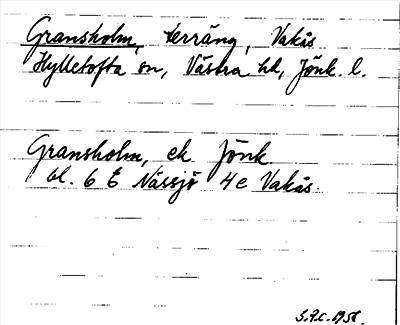 Gransholm, terräng, Vakås
Hylletofta sn, Västra hd, Jönk. l.
Gransholm, ek Jönk
bl. 6 E Nässjö 4 e Vakås